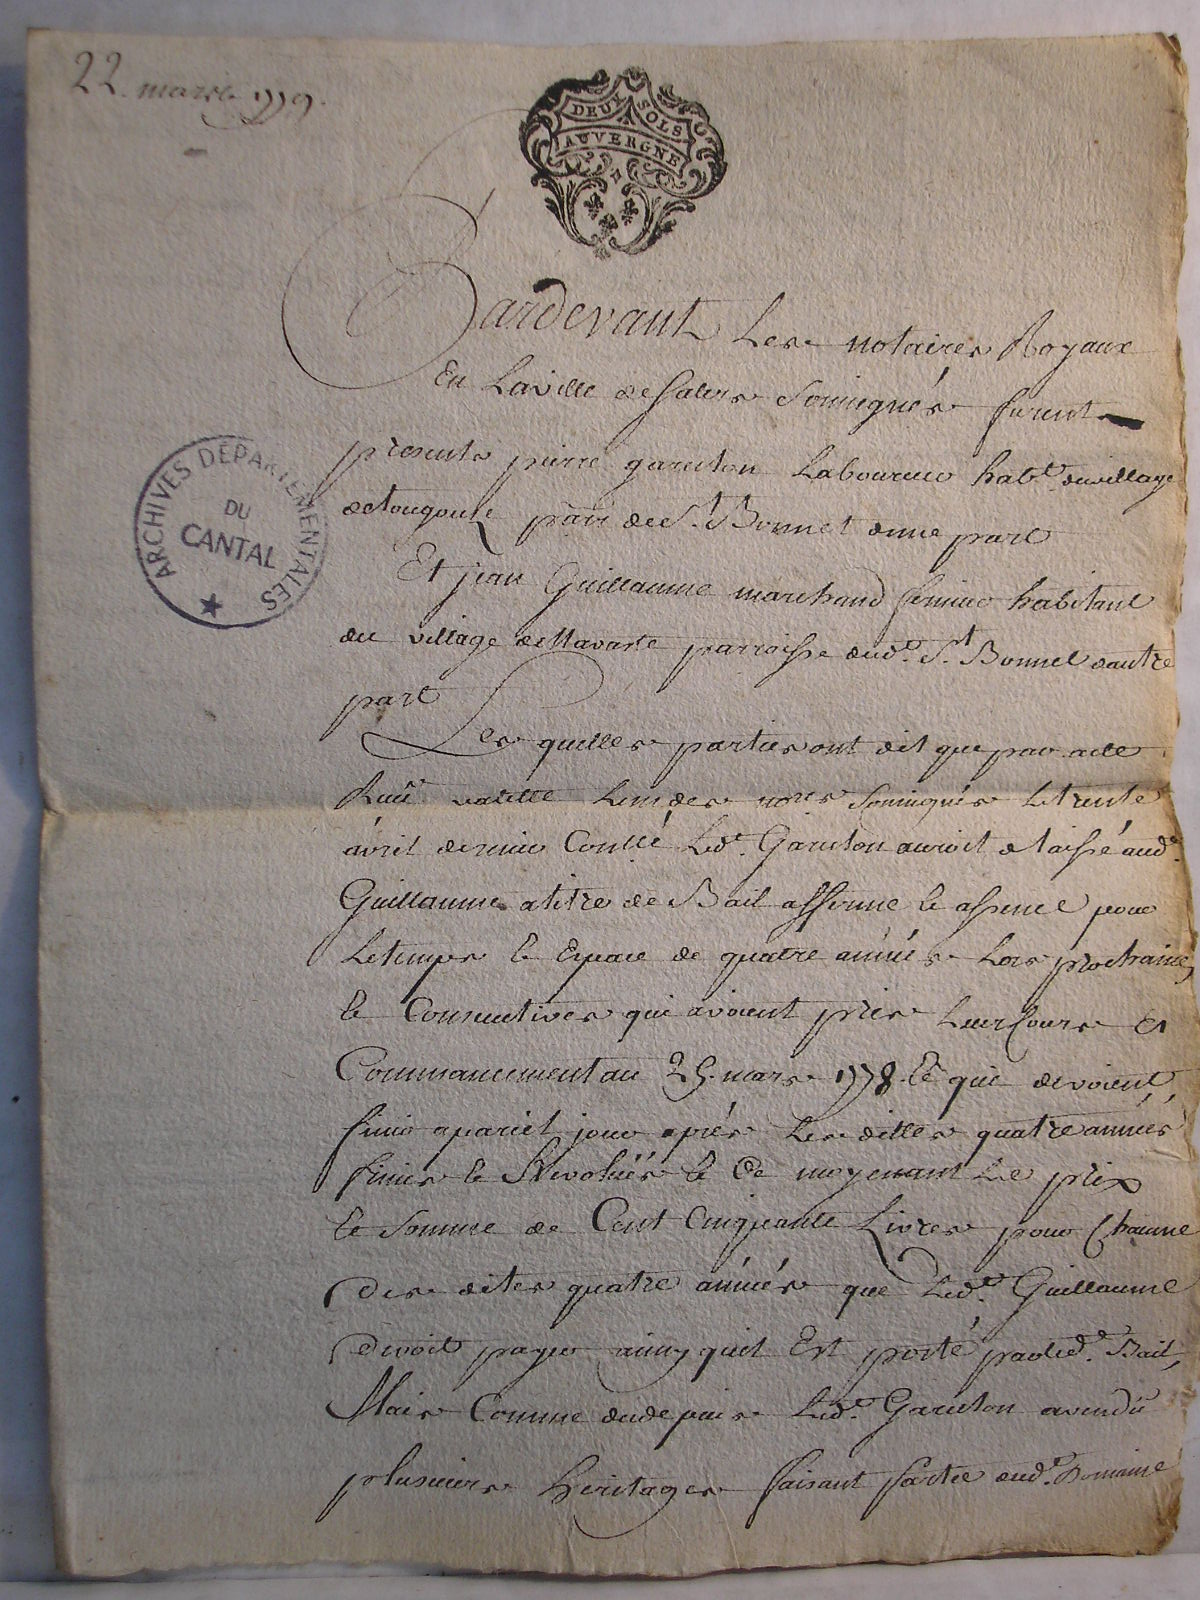 22. mars 1779.
DEUX SOLS
AUVERGNE
Pardevant Les notaires Royaux
En Laville de Salers Soussignés furent
presents pierre garceton Laboureur habt. du village
de tougouse parr de St. Bonnet dune part
Et jean Guillaume marchand fermier habitant
du village de Navaste parroisse dud. St. Bonnet dautre
part
Les quelles parties ont dit que par acte
Reçu valette Lun des nores Soussignés Le trente
avril dernier Conllé Led. Garceton auroit delaissé aud.
Guillaume a titre de Bail afferme & assence pour
Le temps & Espace de quatre années Lors prochaines
& Consecutives qui avoient pris Leur Cours Et
Commancement au 25. mars 1778. & qui devoient
finir a pareil jour après Les dittes quatre années
finies & Revolués & Ce moyenant Le prix
& Somme de Cent Cinquante Livres pour Chacune
Des dites quatre années que Led. Guillaume
Devoit payer ainsy quil Est porté par led. Bail,
Mais Comme dudepuis Led. Garceton avendu
plusieurs heritages faisant partie dud. Domaine
ARCHIVES DÉPARTEMENTALES
DU
CANTAL